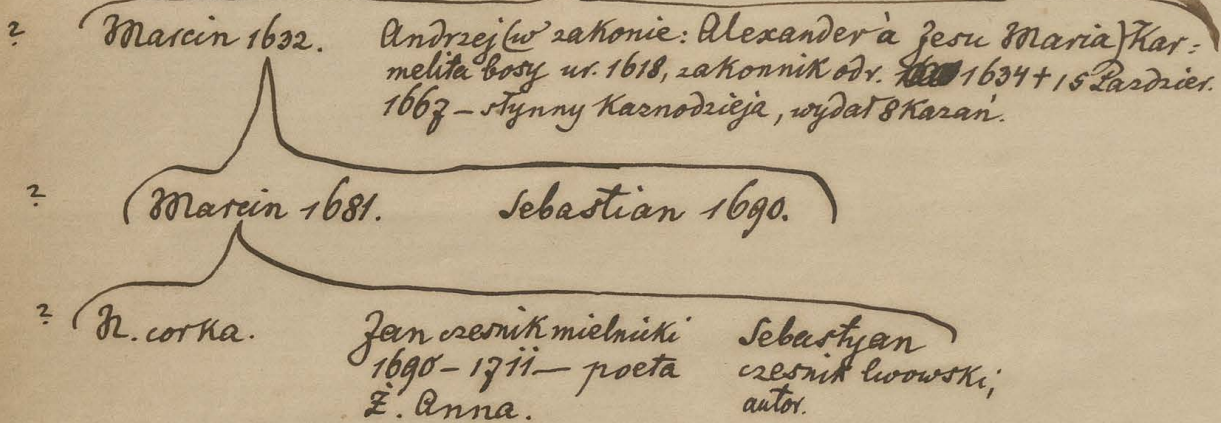 ? Marcin 1632. Andrzej (w zakonie: Alexander à Jesu Maria) Kar=
melita bosy ur. 1618, zakonnik odr. 1634 + 15 Pazdzier.
1667 – słynny Kaznodzieja, wydał 8 Kazań.
? Marcin 1681. Sebastian 1690.
? N. corka. Jan czesnik mielnicki Sebastyan
1690 – 1711 – poeta czesnik lwowski,
Ż. Anna. autor.